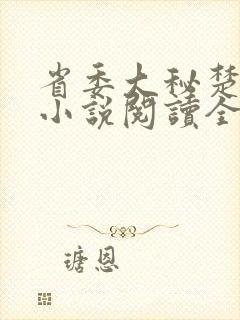 省委大秘楚
小說閱讀全
瑭恩